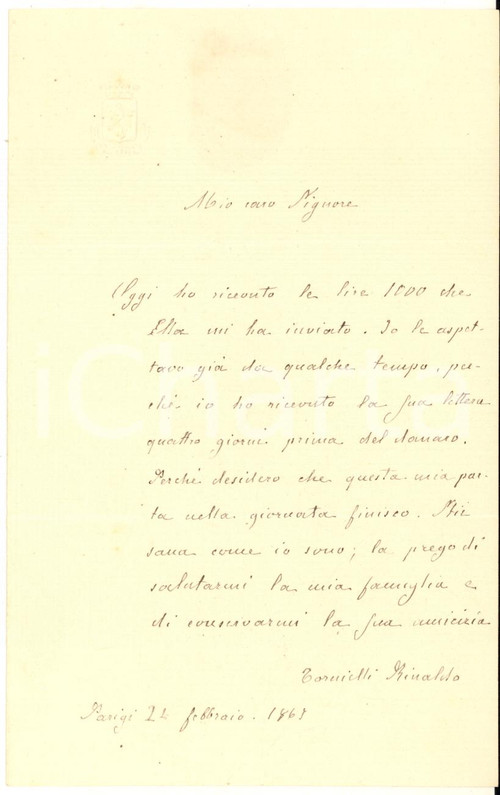 Mio caro Signore
Oggi ho ricevuto le lire 1000 che
Ella mi ha inviato. Io le aspet-
tavo già da qualche tempo, per-
chè io ho ricevuto la sua lettera
quattro giorni prima del danaro.
Perchè desidero che questa mia par-
ta nella giornata finisco. Stia
sana come io sono; la prego di
salutarmi la mia famiglia e
di conservarmi la sua amicizia
Tornielli Rinaldo
Parigi 24 febbraio. 1865